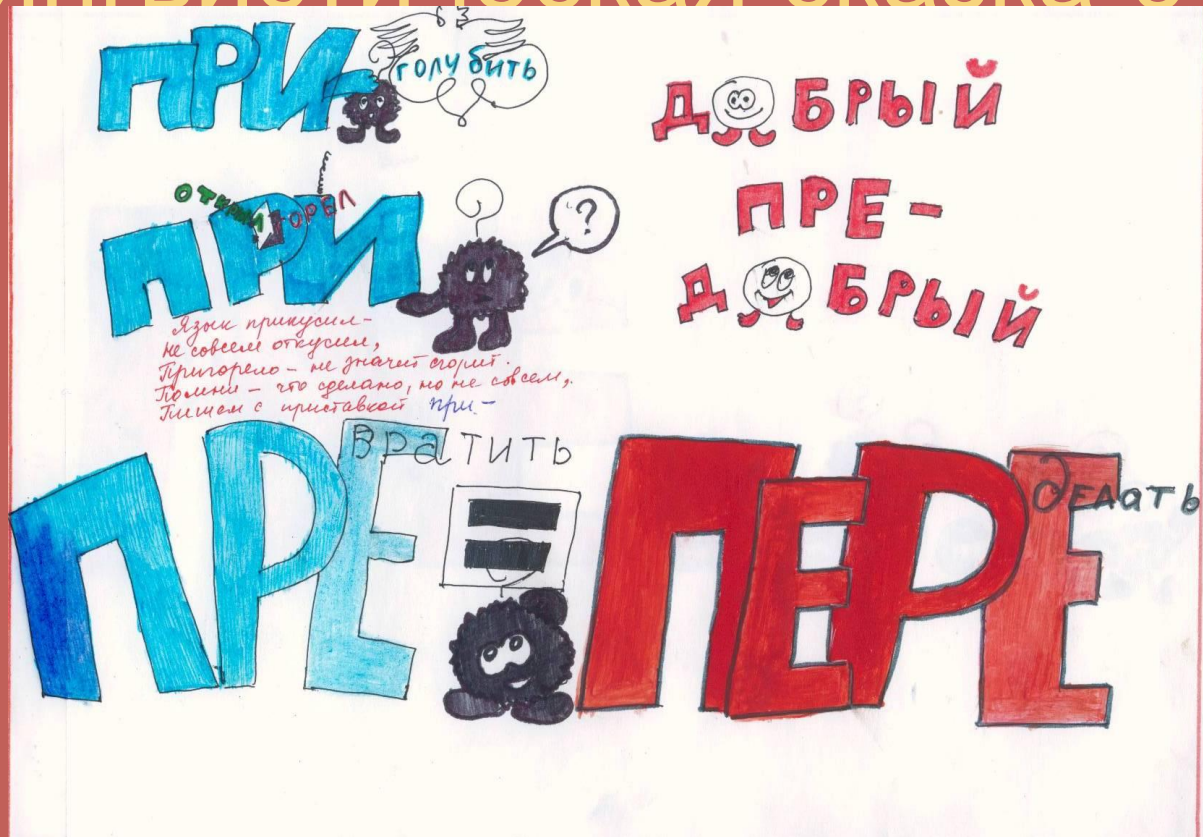 нгвистическая сказка о
ПРИ-
голубить
ДОБРЫЙ
ПРЕ-
ДОБРЫЙ
горел
ПРИ
?
Язык прикусил –
не совсем откусил,
Пригорело – не значит сгорит.
Помни – что сделано, но не совсем,
Пишем с приставкой при-
ПРЕ
вратить
=
ПЕРЕ
делать